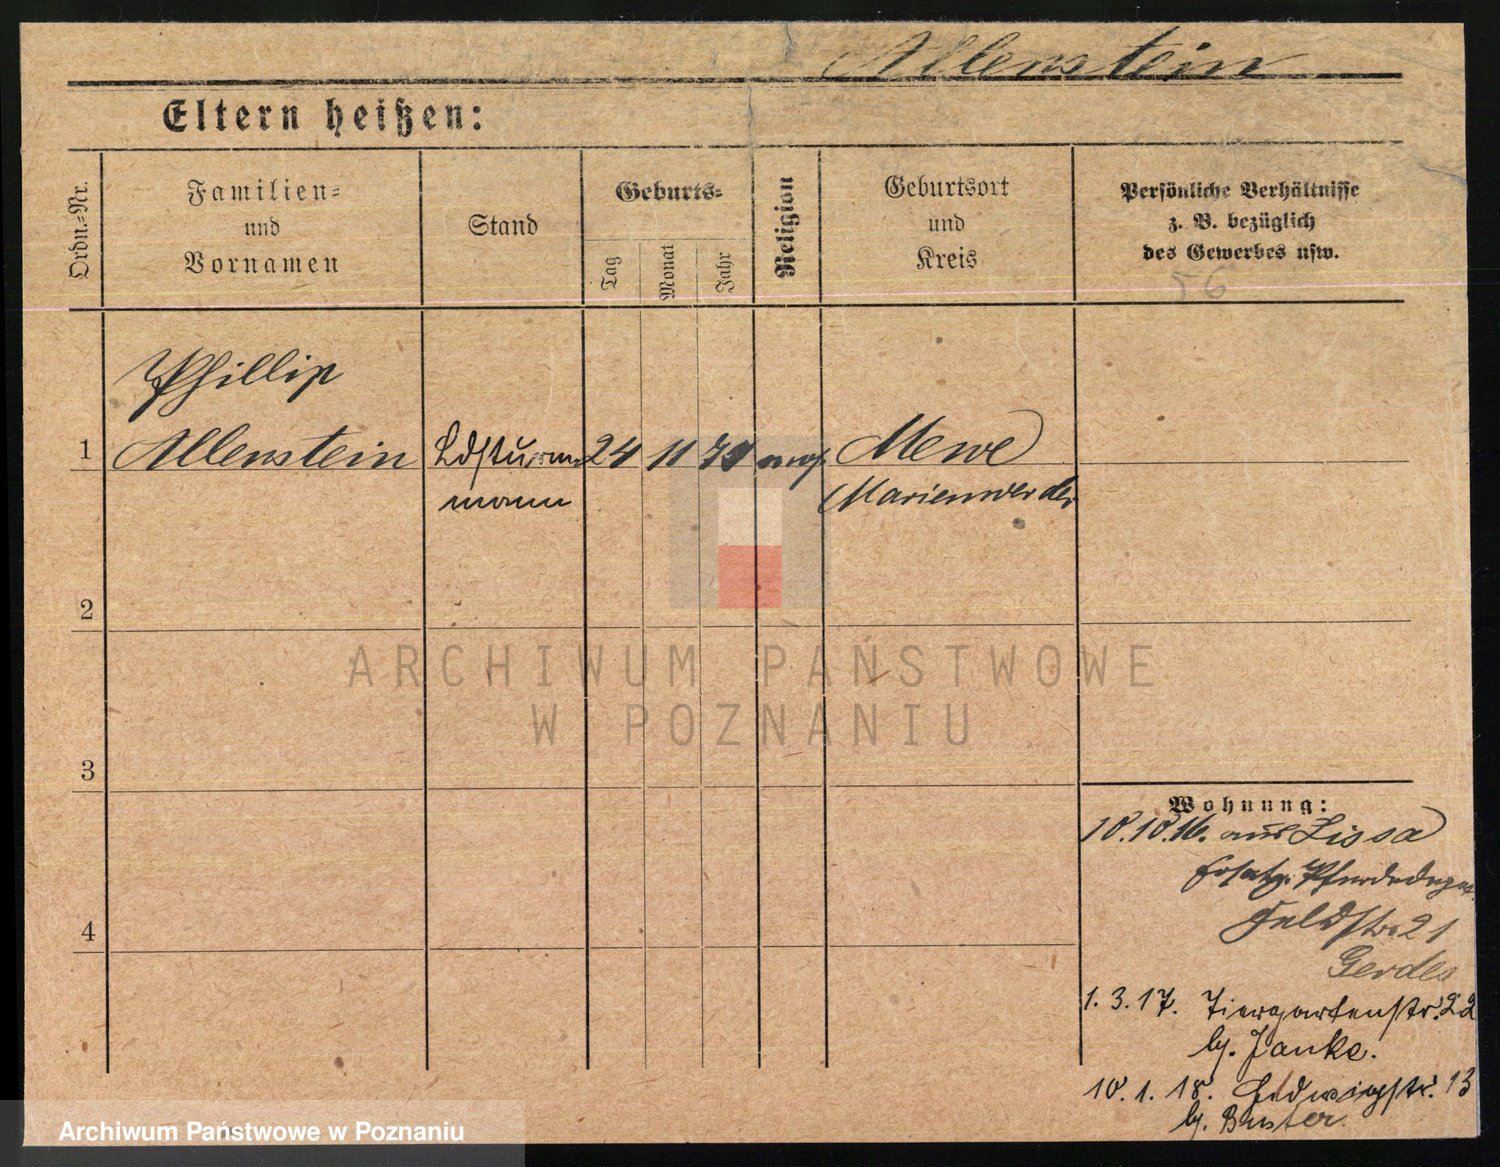 Allenstein
Eltern heißen:
Ordn.-Nr.
Familien-
und
Vornamen
Stand
Geburts-
Tag
Monat
Jahr
Religion
Geburtsort
und
Kreis
Persönliche Verhältnisse
z. B. bezüglich
des Gewerbes usw.
56
Phillip
1 Allenstein Ldsturm- 24 11 mos. Mewe
mann Marienwerder
2
3
4
Wohnung:
10.10.16. aus Lissa
Ersatz Pferdedepot
Feldstr 21
Gerdes
1.3.17. Tiergartenstr. 22
by. Janke.
10.1.18. 13
by.
ARCHIWUM PAŃSTWOWE
W POZNANIU
Archiwum Państwowe w Poznaniu